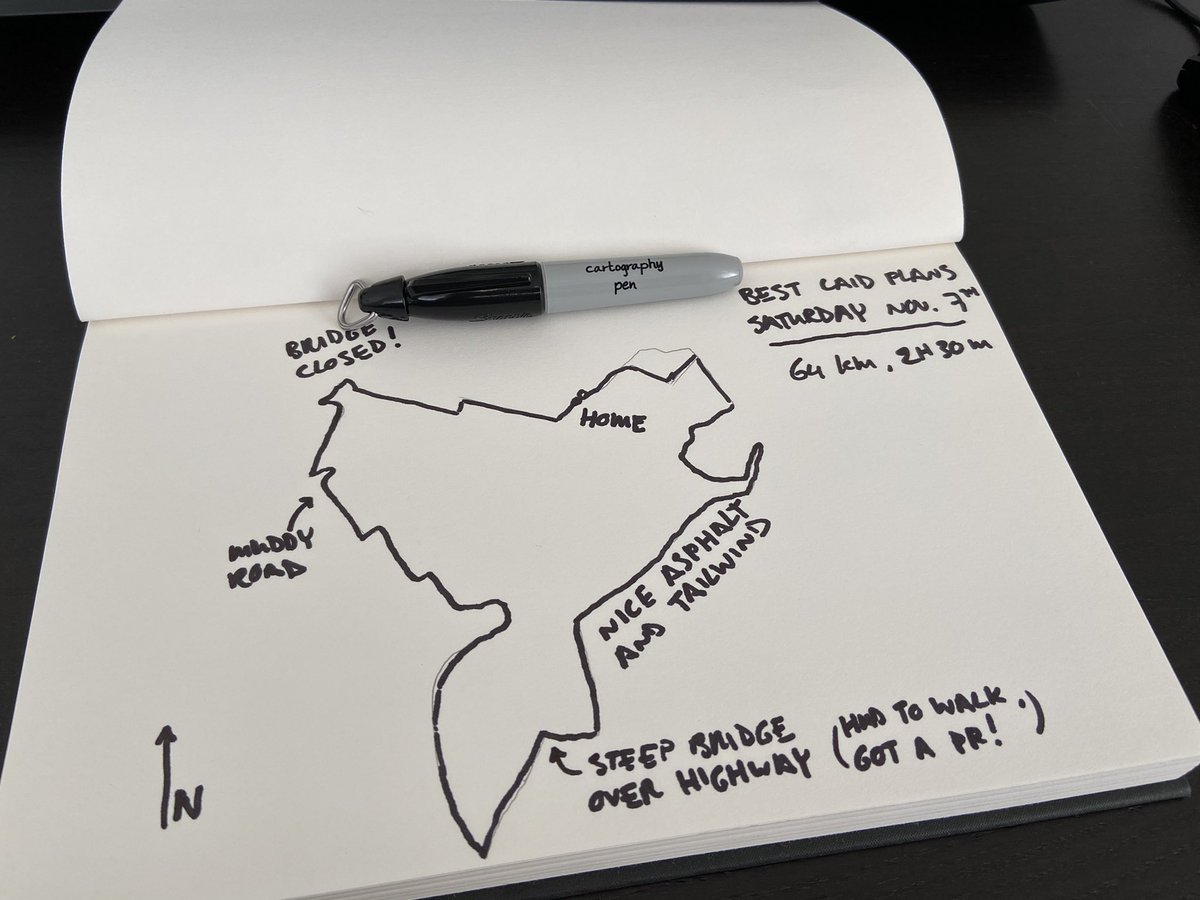 cartography
pen
BEST LAID PLANS
SATURDAY NOV. 7TH
64 km, 2H30m
BRIDGE
CLOSED!
HOME
MUDDY
ROAD
NICE ASPHALT
AND TAILWIND
STEEP BRIDGE
OVER HIGHWAY
(HAD TO WALK.
GOT A PR!)
N